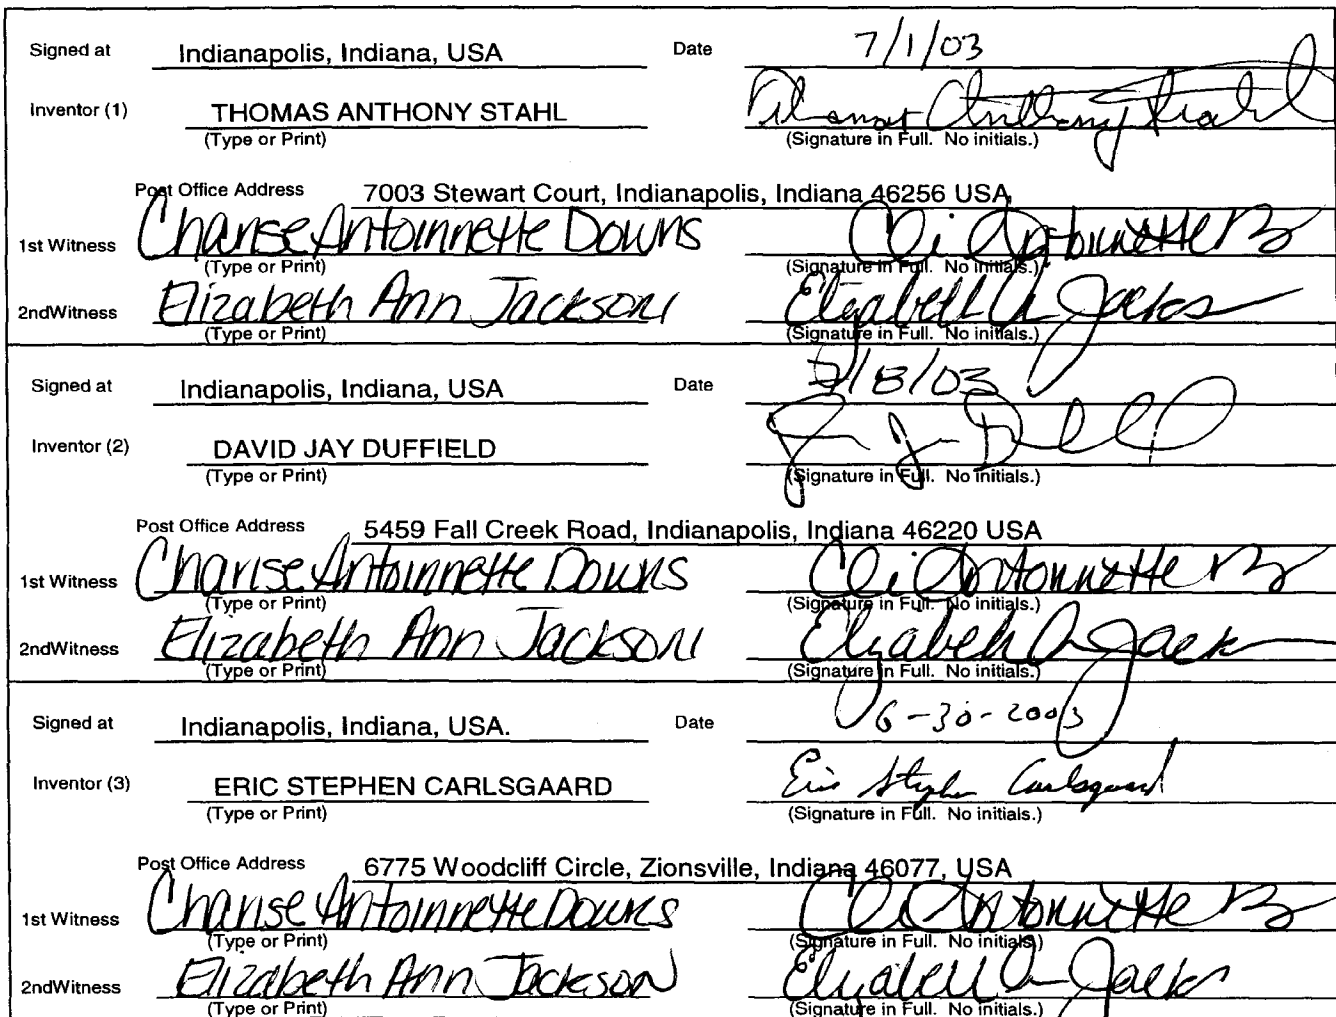 Signed at Indianapolis, Indiana, USA Date 7/1/03
Inventor (1) THOMAS ANTHONY STAHL Thomas Anthony Stahl
(Type or Print) (Signature in Full. No initials.)
Post Office Address 7003 Stewart Court, Indianapolis, Indiana 46256 USA
1st Witness Charise Antoinnette Downs Antoinnette
(Type or Print) (Signature in Full. No initials.)
2ndWitness Elizabeth Ann Jackson Elizabeth A Jacks
(Type or Print) (Signature in Full. No initials.)
Signed at Indianapolis, Indiana, USA Date 7/8/03
Inventor (2) DAVID JAY DUFFIELD
(Type or Print) (Signature in Full. No initials.)
Post Office Address 5459 Fall Creek Road, Indianapolis, Indiana 46220 USA
1st Witness Charise Antoinnette Downs Antoinnette
(Type or Print) (Signature in Full. No initials.)
2ndWitness Elizabeth Ann Jackson Elizabeth A Jack
(Type or Print) (Signature in Full. No initials.)
Signed at Indianapolis, Indiana, USA. Date 6-30-2003
Inventor (3) ERIC STEPHEN CARLSGAARD Eric Stephen Carlsgaard
(Type or Print) (Signature in Full. No initials.)
Post Office Address 6775 Woodcliff Circle, Zionsville, Indiana 46077, USA
1st Witness Charise Antoinnette Downs Antoinnette
(Type or Print) (Signature in Full. No initials.)
2ndWitness Elizabeth Ann Jackson Elizabeth A Jacks
(Type or Print) (Signature in Full. No initials.)